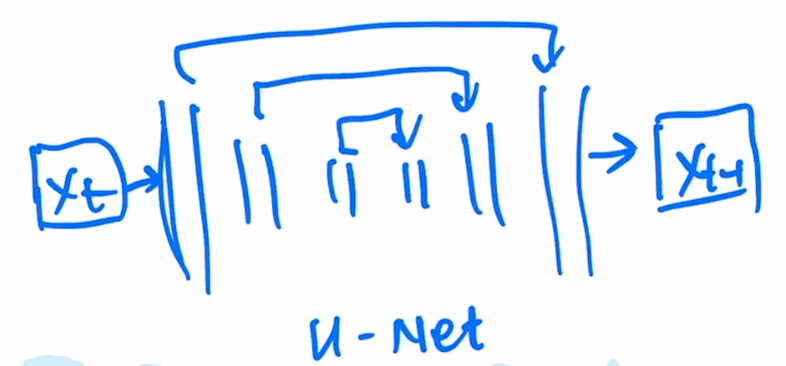 Xt
Xt-1
U-Net